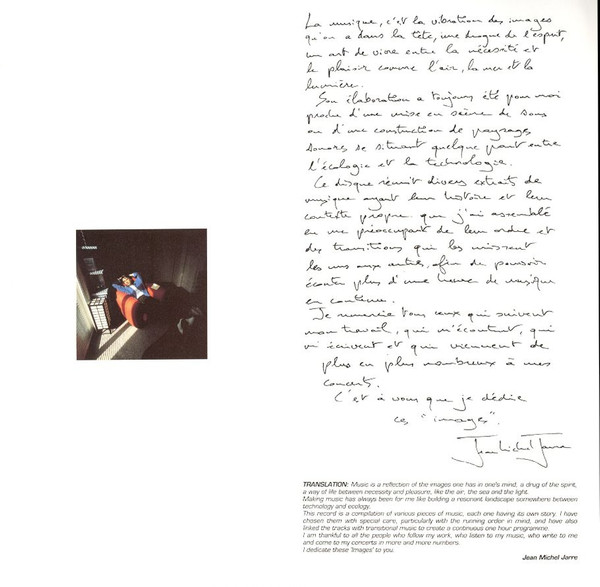 La musique, c'est la vibration des images
qu'on a dans la tête, une drogue de l'esprit,
un art de vivre entre la nécessité et
le plaisir comme l'air, la mer et la
lumière.
Son élaboration a toujours été pour moi
proche d'une mise en scène de sons
ou d'une construction de paysages
sonores se situant quelque part entre
l'écologie et la technologie.
Ce disque réunit divers extraits de
musique ayant leur histoire et leur
contexte propre que j'ai assemblé
en me préoccupant de leur ordre et
des transitions qui les unissent
les uns aux autres, afin de pouvoir
écouter plus d'une heure de musique
en continu.
Je remercie tous ceux qui suivent
mon travail, qui m'écoutent, qui
m'écrivent et qui viennent de
plus en plus nombreux à mes
concerts.
C'est à vous que je dédie
ces "images".
Jean Michel Jarre
TRANSLATION: Music is a reflection of the images one has in one's mind, a drug of the spirit,
a way of life between necessity and pleasure, like the air, the sea and the light.
Making music has always been for me like building a resonant landscape somewhere between
technology and ecology.
This record is a compilation of various pieces of music, each one having its own story. I have
chosen them with special care, particularly with the running order in mind, and have also
linked the tracks with transitional music to create a continuous one hour programme.
I am thankful to all the people who follow my work, who listen to my music, who write to me
and come to my concerts in more and more numbers.
I dedicate these 'Images' to you.
Jean Michel Jarre